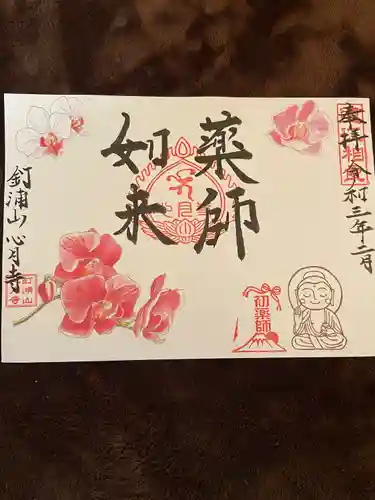 奉拝
令和三年二月
薬師
如来
初薬師
釘浦山 心月寺